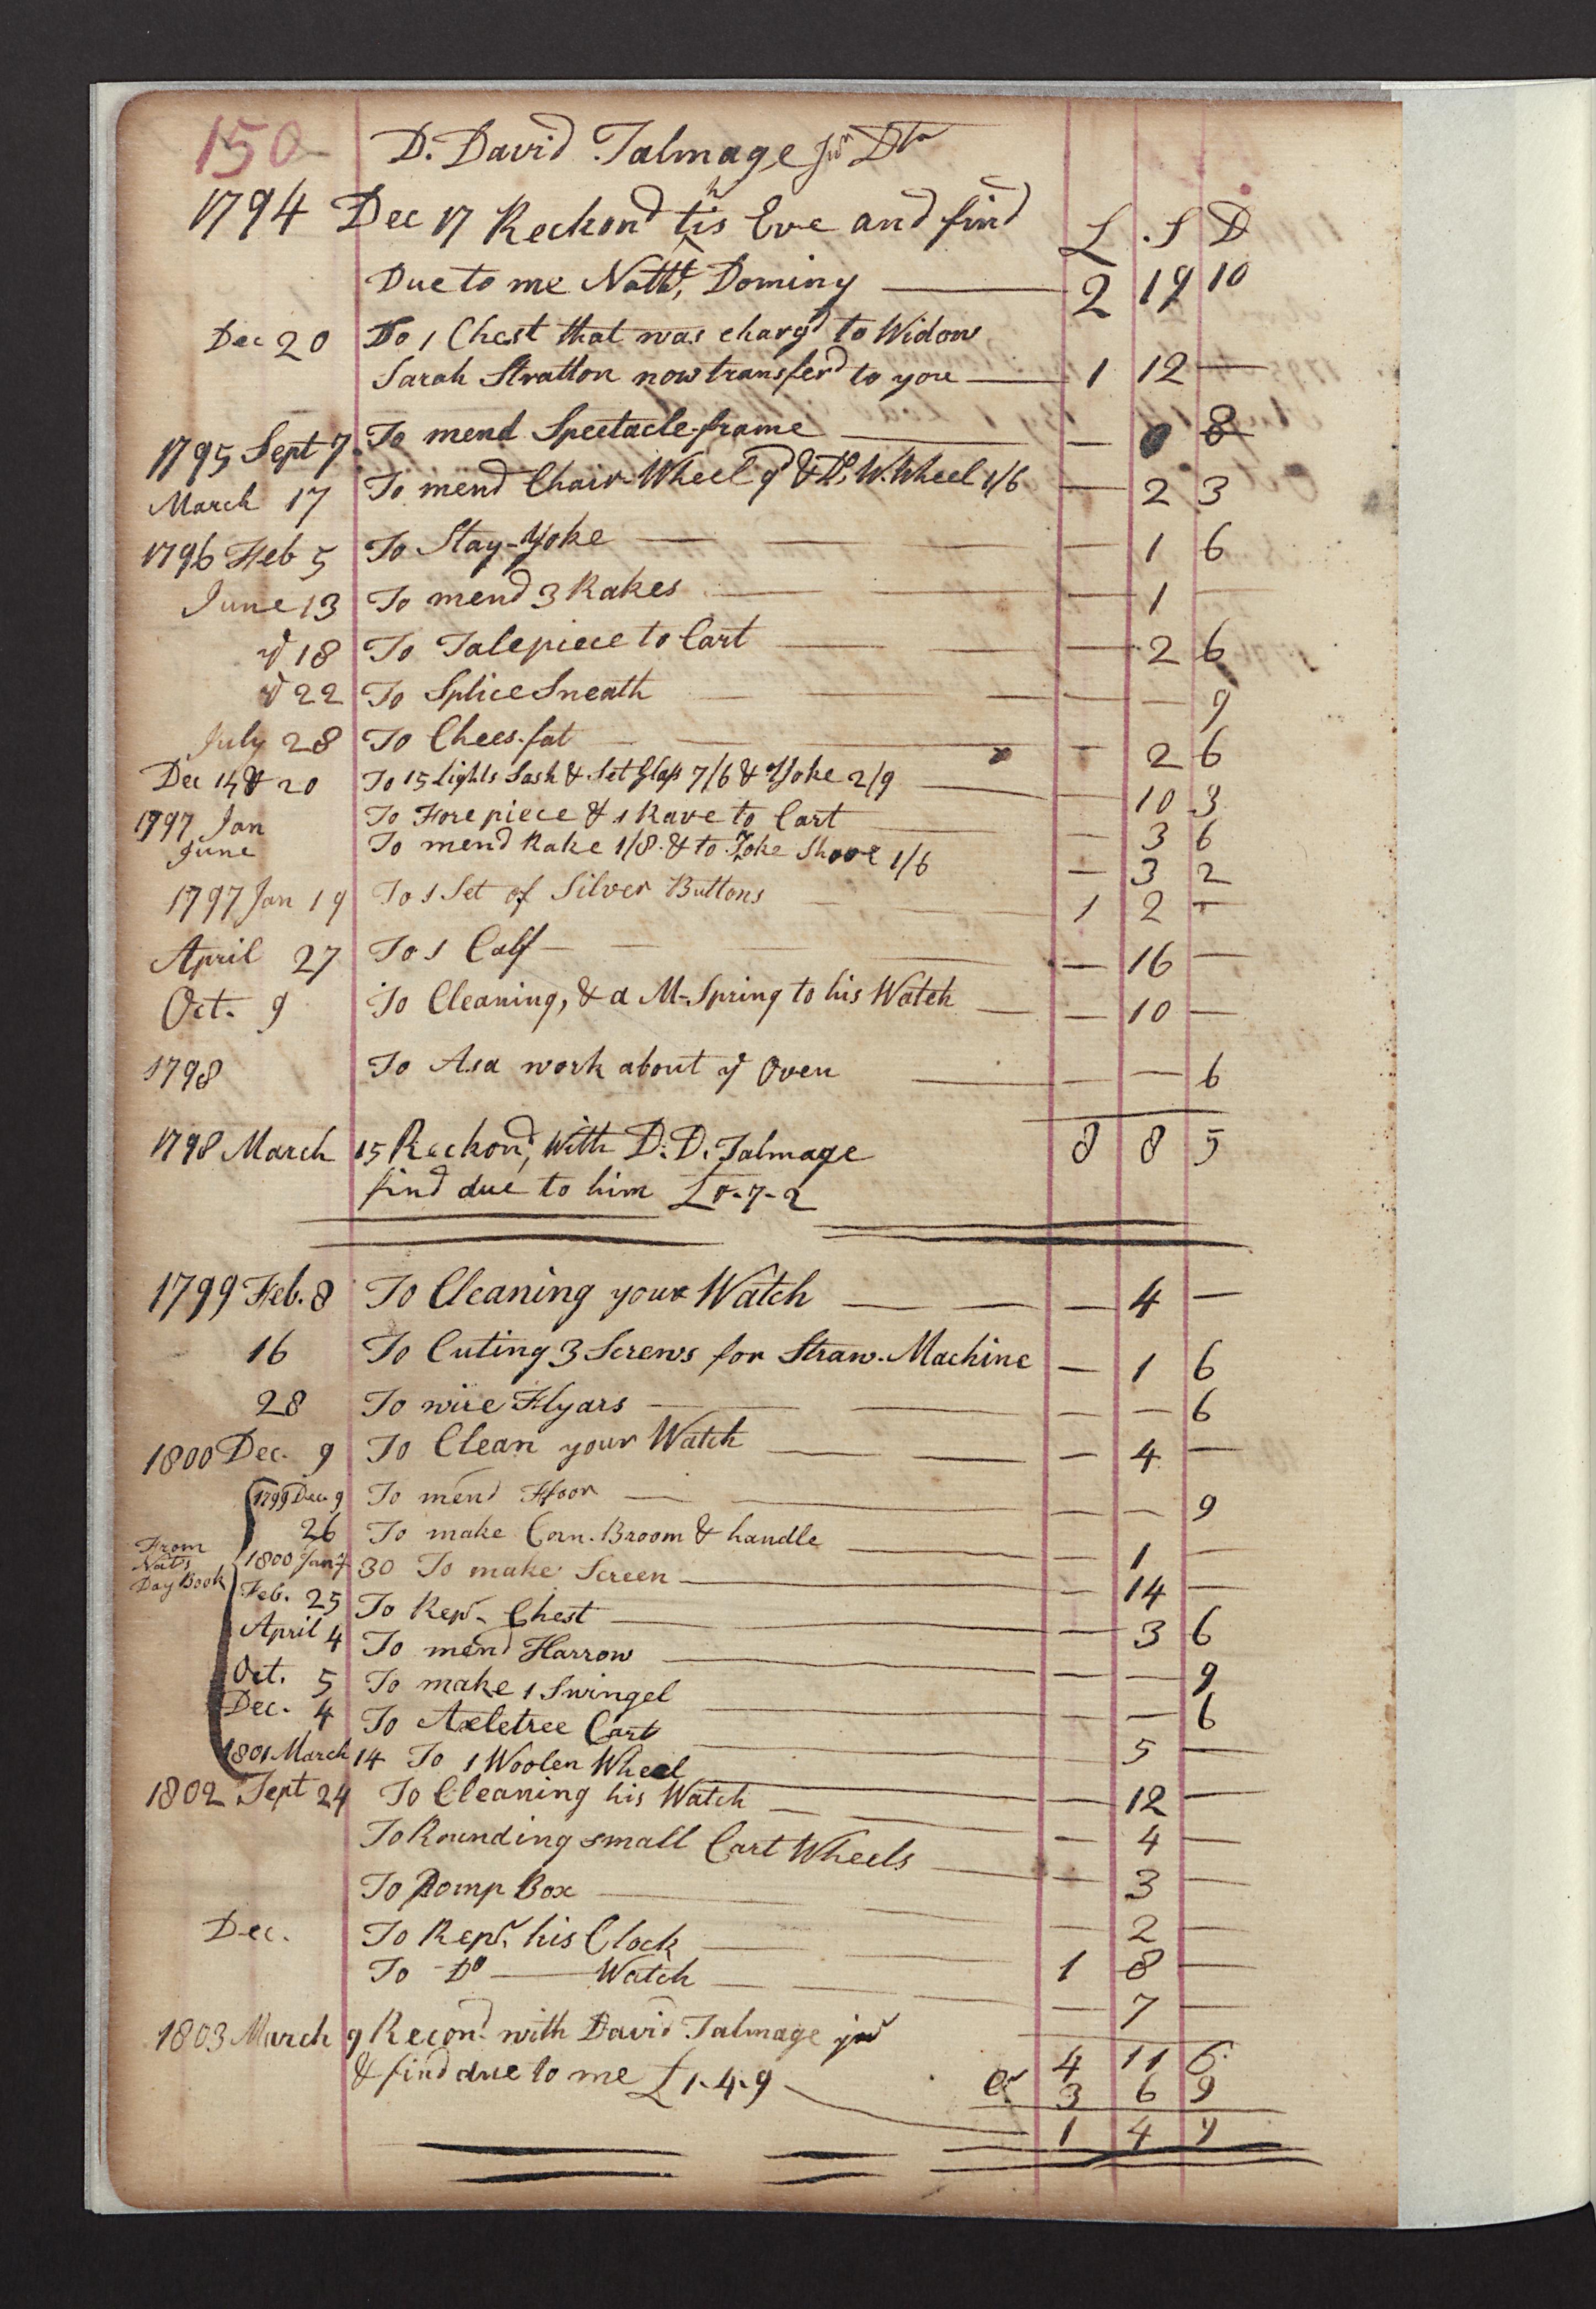 150 D. David Talmage Jun Dr
1794 Dec 17 Reckond this Eve and find
L S D
Due to me Nathl, Dominy — 2 19 10
Dec 20 To 1 Chest that was chargd to Widow
Sarah Stratton now transferd to you — 1 12 —
1795 Sept 7. To mend Spectacle frame — — 0 8
March 17 To mend Chair-Wheel 9d & Do. W. Wheel 1/6 — 2 3
1796 Feb 5 To Stay-Yoke — — — — 1 6
June 13 To mend 3 Rakes — — — — 1 —
yd 18 To Talepiece to Cart — — — — 2 6
yd 22 To Splice Sneath — — — — — 9
July 28 To Chees-fat — — — — 2 6
Dec 14 & 20 To 15 Lights Sash & Set Glass 7/6 & Yoke 2/9 — — 10 3
1797 Jan To Forepiece & 1 Rave to Cart — — 3 6
June To mend Rake 1/8. & to Yoke Shove 1/6 — 3 2
1797 Jan 19 To 1 Set of Silver Buttons — — 1 2 —
April 27 To 1 Calf — — — — — 16 —
Oct. 9 To Cleaning, & a M-Spring to his Watch — — 10 —
1798 To Asa work about ye Oven — — — 6
1798 March 15 Reckond, with D. D. Talmage 8 8 5
find due to him L 0-7-2
1799 Feb. 8 To Cleaning your Watch — — — 4 —
16 To Cuting 3 Screws for Straw-Machine — 1 6
28 To wire Flyars — — — — — 6
1800 Dec. 9 To Clean your Watch — — — 4 —
1799 Dec. 9 To mend Floor — — — — 9
26 To make Corn-Broom & handle — — 1 —
From
Nat's
Day Book
1800 Jany 30 To make Screen — — 14 —
Feb. 25 To Repr. Chest — — 3 6
April 4 To mend Harrow — — — 9
Oct. 5 To make 1 Swingel — — — 6
Dec. 4 To Axletree Cart — 5 —
1801 March 14 To 1 Woolen Wheel — — 12 —
1802 Sept 24 To Cleaning his Watch — — — 4 —
To Rounding small Cart Wheels — — 3 —
To Pomp Box — — — 2 —
Dec. To Repr. his Clock — — 1 8 —
To Do — Watch — — — 7 —
1803 March 9 Recond with David Talmage jur 4 11 6
& find due to me L 1-4-9 — Cr 3 6 9
1 4 9